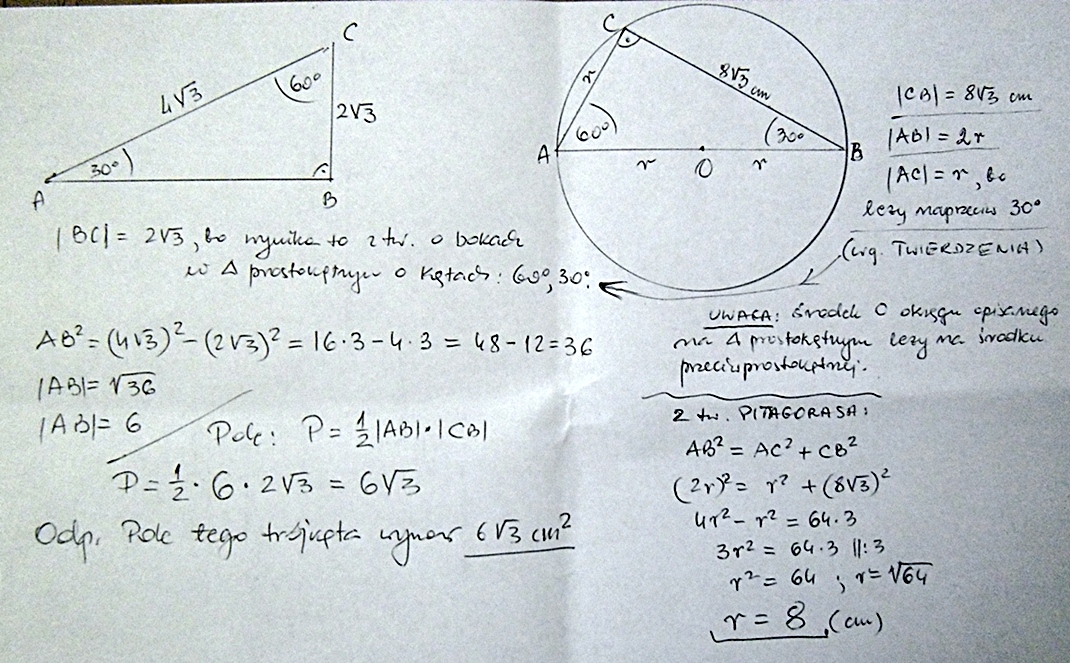 C
60°
4√3
2√3
30°
A
B
|BC| = 2√3, bo wynika to z tw. o bokach
w Δ prostokątnym o kątach: 60°, 30°.
AB² = (4√3)² - (2√3)² = 16·3 - 4·3 = 48 - 12 = 36
|AB| = √36
|AB| = 6
Pole: P = 1/2 |AB|·|CB|
P = 1/2 · 6 · 2√3 = 6√3
Odp. Pole tego trójkąta wynosi 6√3 cm²
C
r
8√3 cm
60°
30°
A
r
O
r
B
|CB| = 8√3 cm
|AB| = 2r
|AC| = r, bo
leży naprzeciw 30°
(wg. TWIERDZENIA)
UWAGA: środek O okręgu opisanego
na Δ prostokątnym leży na środku
przeciwprostokątnej.
z tw. PITAGORASA:
AB² = AC² + CB²
(2r)² = r² + (8√3)²
4r² - r² = 64·3
3r² = 64·3 ||:3
r² = 64 ; r = √64
r = 8 (cm)